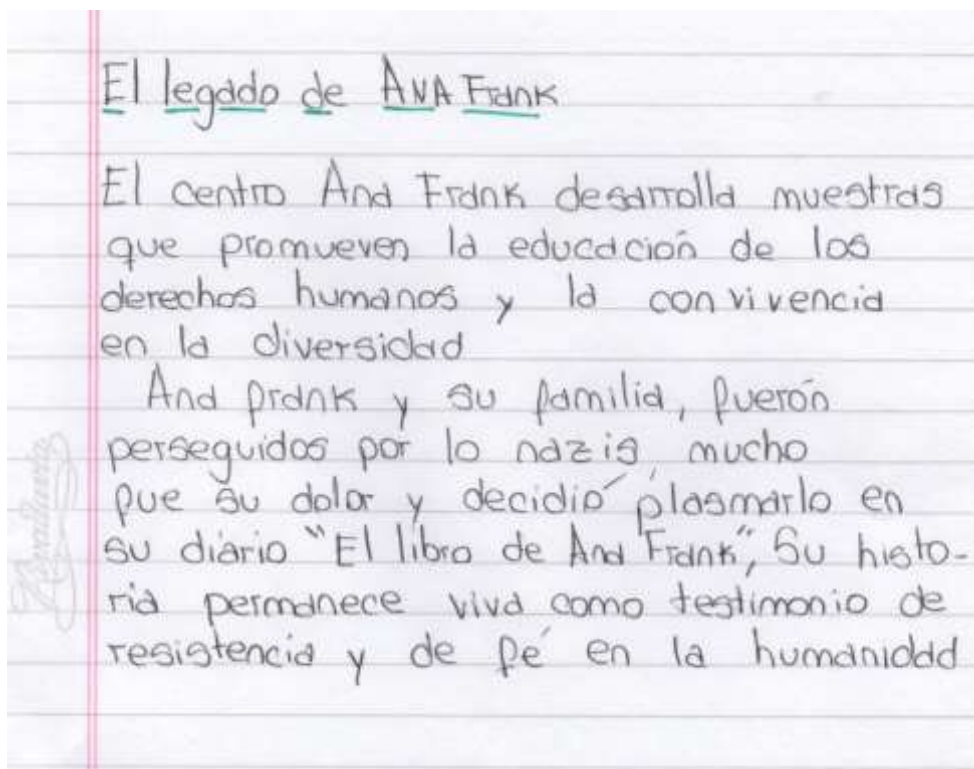 El legado de ANA Frank
El centro Ana Frank desarrolla muestras
que promueven la educación de los
derechos humanos y la convivencia
en la diversidad
Ana Frank y su familia, fuerón
perseguidos por lo nazis, mucho
fue su dolor y decidió plasmarlo en
su diario "El libro de Ana Frank", Su histo-
ria permanece viva como testimonio de
resistencia y de fé en la humanidad
Rivadavia